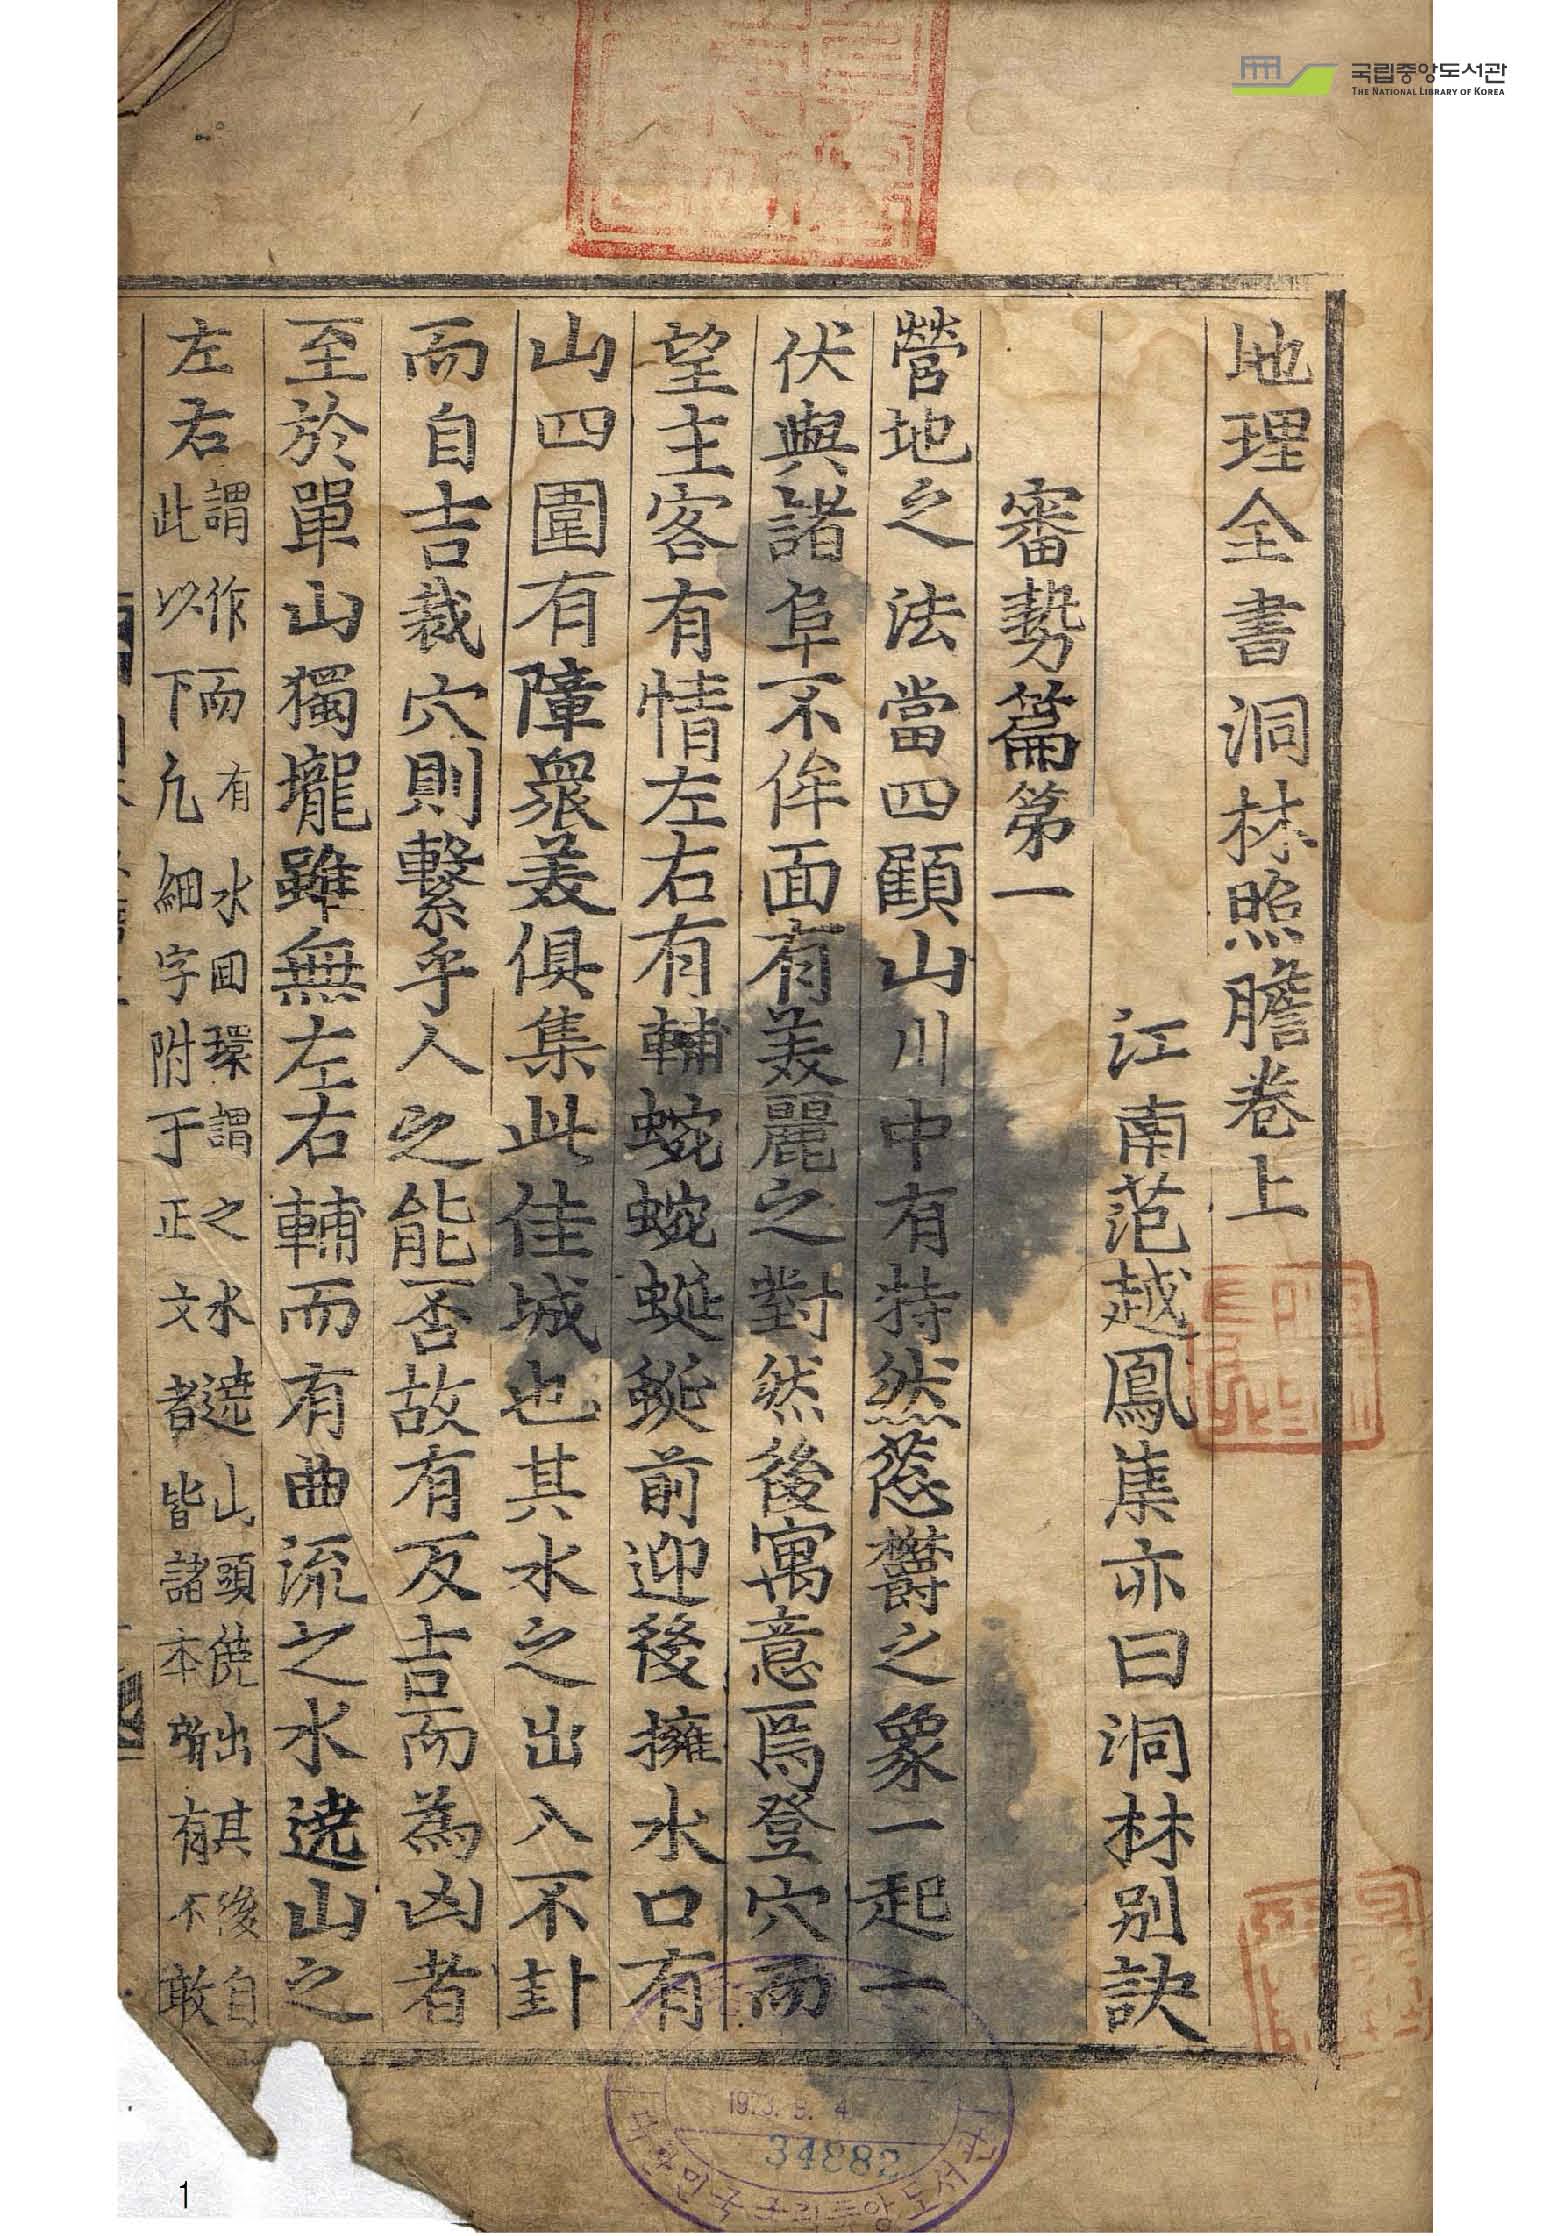 국립중앙도서관
THE NATIONAL LIBRARY OF KOREA
地理全書洞林照膽卷上
江南范越鳳集亦曰洞林別訣
審勢篇第一
營地之法當四顧山川中有特然蓊欝之象一起一
伏與諸阜不侔面有美麗之對然後寓意焉登穴而
望主客有情左右有輔蜿蜿蜒蜒前迎後擁水口有
山四圍有障衆美俱集此佳城也其水之出入不卦
而自吉裁穴則繫乎人之能否故有反吉而為凶者
至於單山獨壠雖無左右輔而有曲流之水遶山之
左右
謂作而有水囬環謂之水遶山頭饒出其後自
此以下凢細字附于正文者皆諸本所有不敢
1973. 5. 4
34882
대한민국국립중앙도서관
1